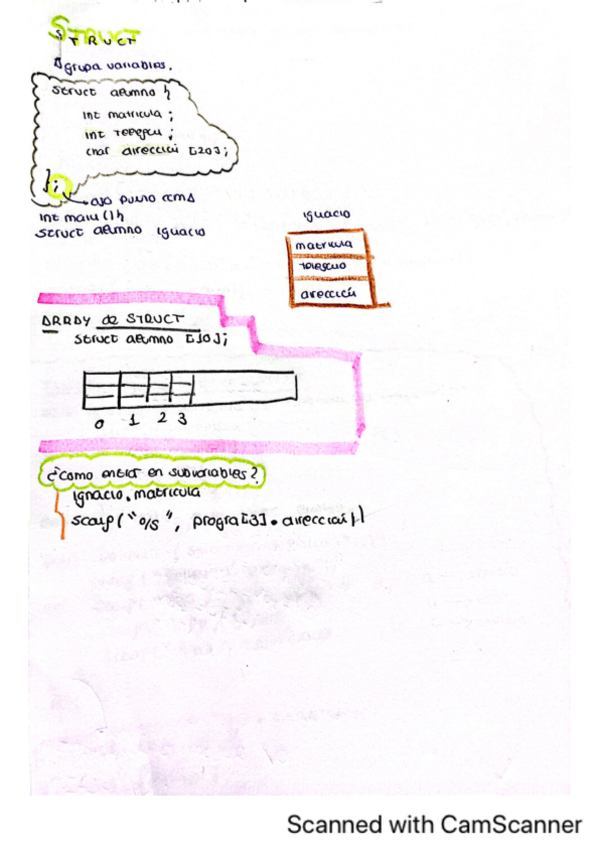 STRUCT
Agrupa variables.
struct alumno {
int matricula ;
int telefono ;
char direccion [20] ;
};
ojo punto coma
int main () {
struct alumno ignacio
ignacio
matricula
telefono
direccion
ARRAY de STRUCT
struct alumno [10];
0 1 2 3
¿como entrar en subvariables?
ignacio.matricula
scanf("%s", progra[3].direccion)
Scanned with CamScanner